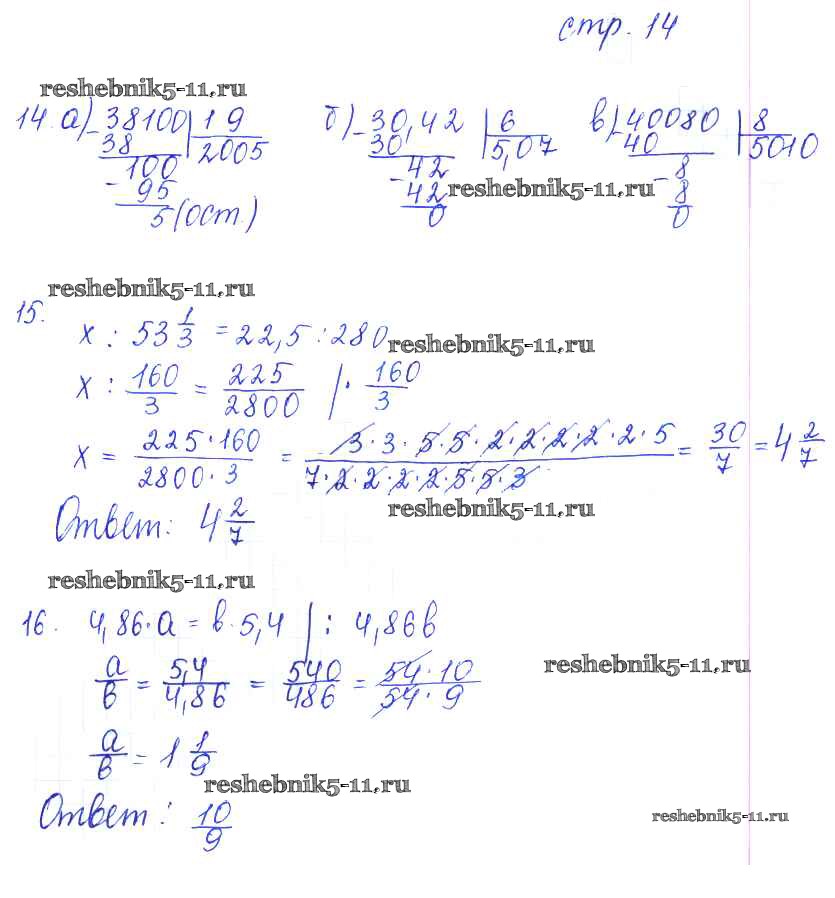 стр. 14
reshebnik5-11.ru
14. а) 38100 | 19 б) 30,42 | 6 в) 40080 | 8
38 | 2005 30 | 5,07 40 | 5010
100 42 8
- 95 - 42 reshebnik5-11.ru - 8
5 (ост.) 0 0
reshebnik5-11.ru
15.
x : 53 1/3 = 22,5 : 280
reshebnik5-11.ru
x : 160/3 = 225/2800 | · 160/3
x = 225·160/2800·3 = 3·3·5·5·2·2·2·2·2·5/7·2·2·2·2·5·5·3 = 30/7 = 4 2/7
reshebnik5-11.ru
Ответ: 4 2/7
reshebnik5-11.ru
16. 4,86·a = в·5,4 | : 4,86в
a/в = 5,4/4,86 = 540/486 = 54·10/54·9
reshebnik5-11.ru
a/в = 1 1/9
reshebnik5-11.ru
Ответ: 10/9
reshebnik5-11.ru